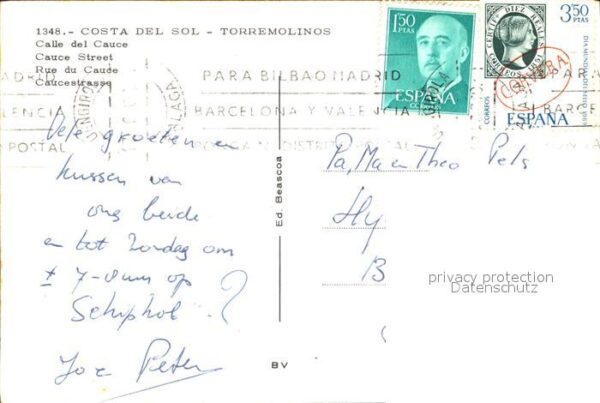 1348.- COSTA DEL SOL - TORREMOLINOS
Calle del Cauce
Cauce Street
Rue du Caude
Caucestrasse
1,50
PTAS
ESPAÑA
CORREOS
3,50
PTAS
CERTDO DIEZ REALES
CORREOS 1851
DIA MUNDIAL DEL SELLO 1967
CORREOS
ESPAÑA
MADRID PARA BILBAO MADRID PARA
VALENCIA BARCELONA Y VALENCIA BARCEL
POSTAL DISTRITO
Vele groeten en
kussen van
ons beide
en tot Zondag om
± 7-uur op
Schiphol ?
Peter
Ed. Beascoa
BV
Pa, Ma en Theo Pels
Hy
B
privacy protection
Datenschutz